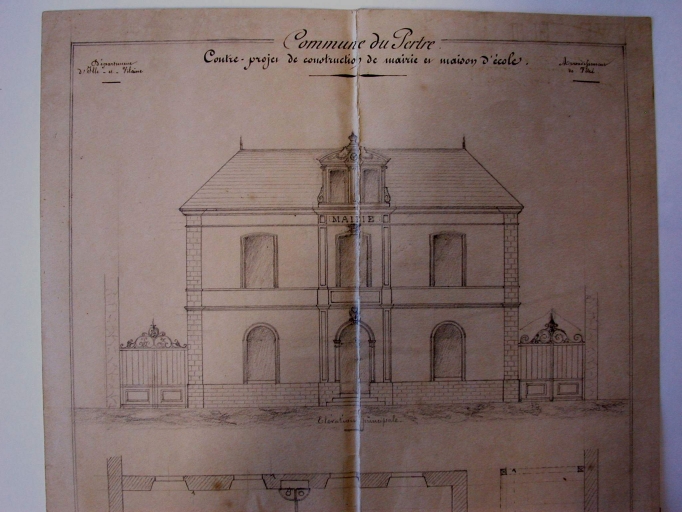 Commune du Pertre
Contre-projet de construction de mairie et maison d'école.
Département
d'Ille-et-Vilaine
Arrondissement
de Vitré
MAIRIE
Elévation principale